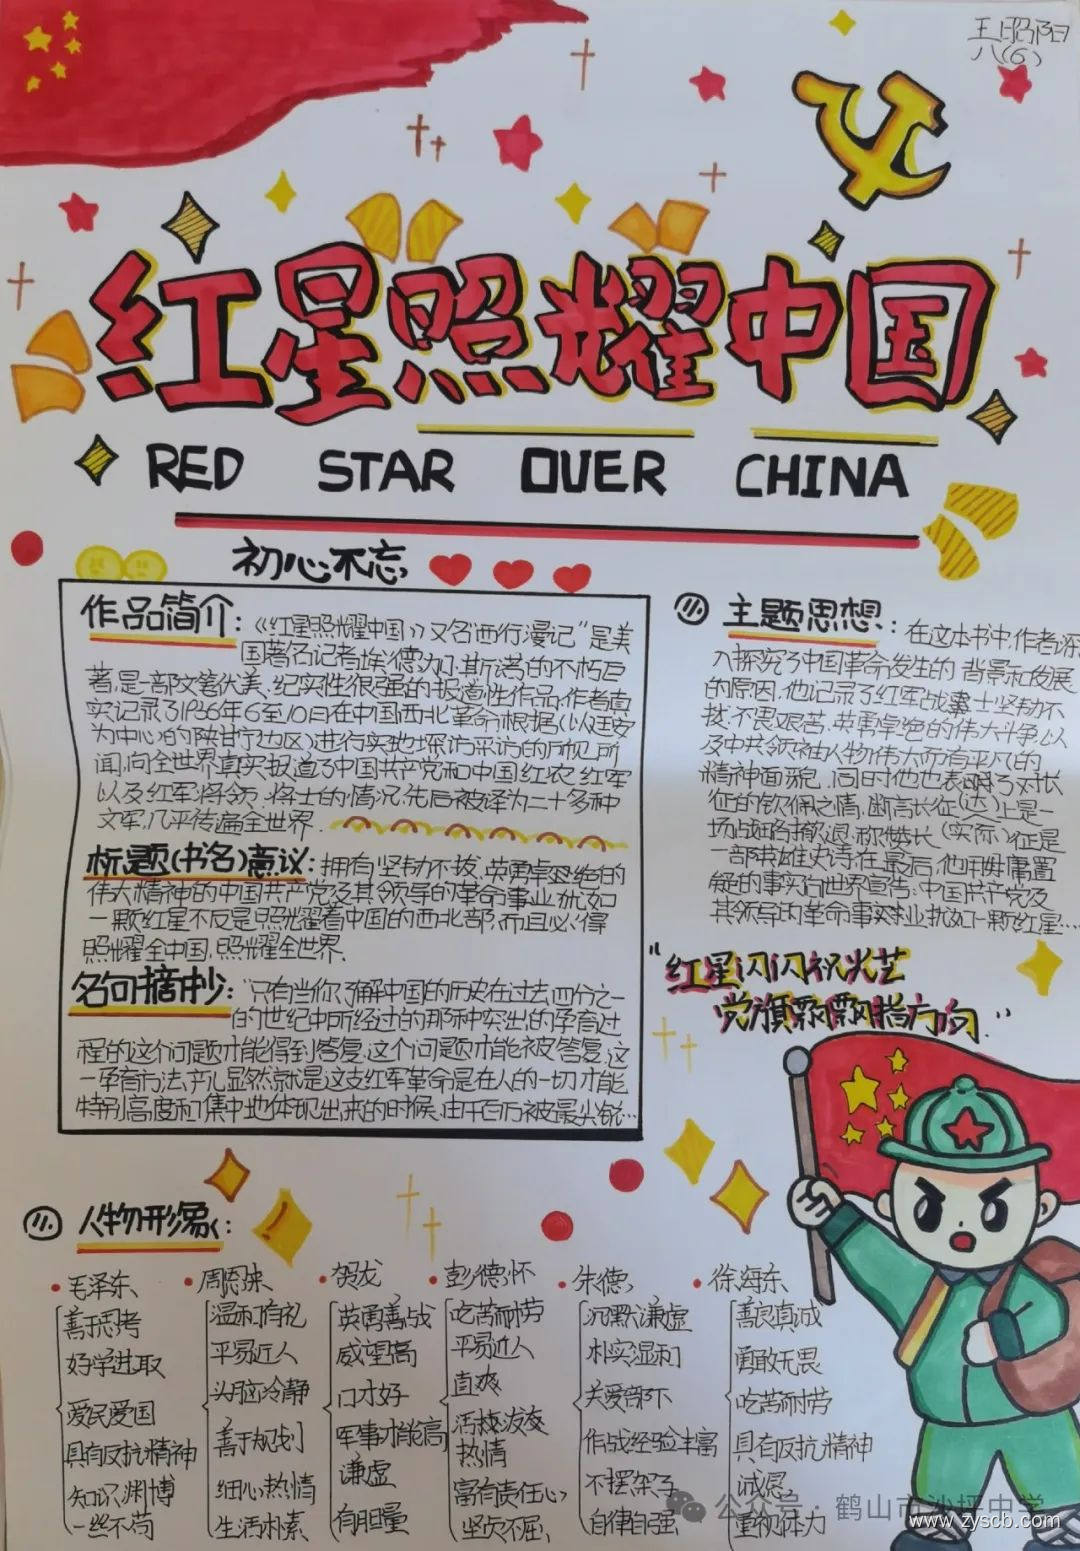 王昭阳
八(6)
红星照耀中国
RED STAR OVER CHINA
初心不忘
作品简介:
《红星照耀中国》又名"西行漫记"是美
国著名记者埃德加·斯诺的不朽巨
著,是一部文笔优美、纪实性很强的报道性作品.作者真
实记录了1936年6至10月在中国西北革命根据(以延安
为中心的陕甘宁边区)进行实地探访采访的所见所
闻,向全世界真实报道了中国共产党和中国红农红军
以及红军将领、将士的情况.先后被译为二十多种
文军,几乎传遍全世界.
标题(书名)意议:拥有坚韧不拔、英勇卓绝的
伟大精神的中国共产党及其领导的革命事业,犹如
一颗红星不反是照耀着中国的西北部,而且必得
照耀全中国,照耀全世界.
名句摘抄:
"只有当你了解中国的历史在过去四分之一
的世纪中所经过的那种突出的孕育过
程的这个问题才能得到答复.这个问题才能被答复.这
一孕育方法
显然就是这支红军革命是在人的一切才能
特别高度和集中地体现出来的时候,由千百万被最尖锐…
二 主题思想:
在这本书中,作者深
入探究了中国革命发生的背景和发展
的原因.他记录了红军战士坚韧不
拔、不畏艰苦、英勇卓绝的伟大斗争,以
及中共领袖人物伟大而有平凡的
精神面貌,同时他也表明了对长
征的钦佩之情,断言长征(达)上是一
场战略撤退,称赞长(实际)征是
一部英雄史诗.在最后,他用毋庸置
疑的事实向世界宣告:中国共产党及
其领导的革命事业犹如一颗红星…
"红星闪闪
光芒
党旗飘飘指方向"
三 人物形象:
毛泽东
善于思考
好学进取
爱民爱国
具有反抗精神
知识渊博
一丝不苟
周恩来
温和有礼
平易近人
头脑冷静
善于规划
细心热情
生活朴素
贺龙
英勇善战
威望高
口才好
军事才能高
谦虚
有胆量
彭德怀
吃苦耐劳
平易近人
直爽
活楼泼爽
热情
富有责任心
坚贞不屈
朱德
沉默谦虚
朴实温和
关爱部下
作战经验丰富
不摆架子
自律自强
徐海东
善良真诚
勇敢无畏
吃苦耐劳
具有反抗精神
诚恳
重视体力
公众号·鹤山市沙坪中学
www.zyscb.com